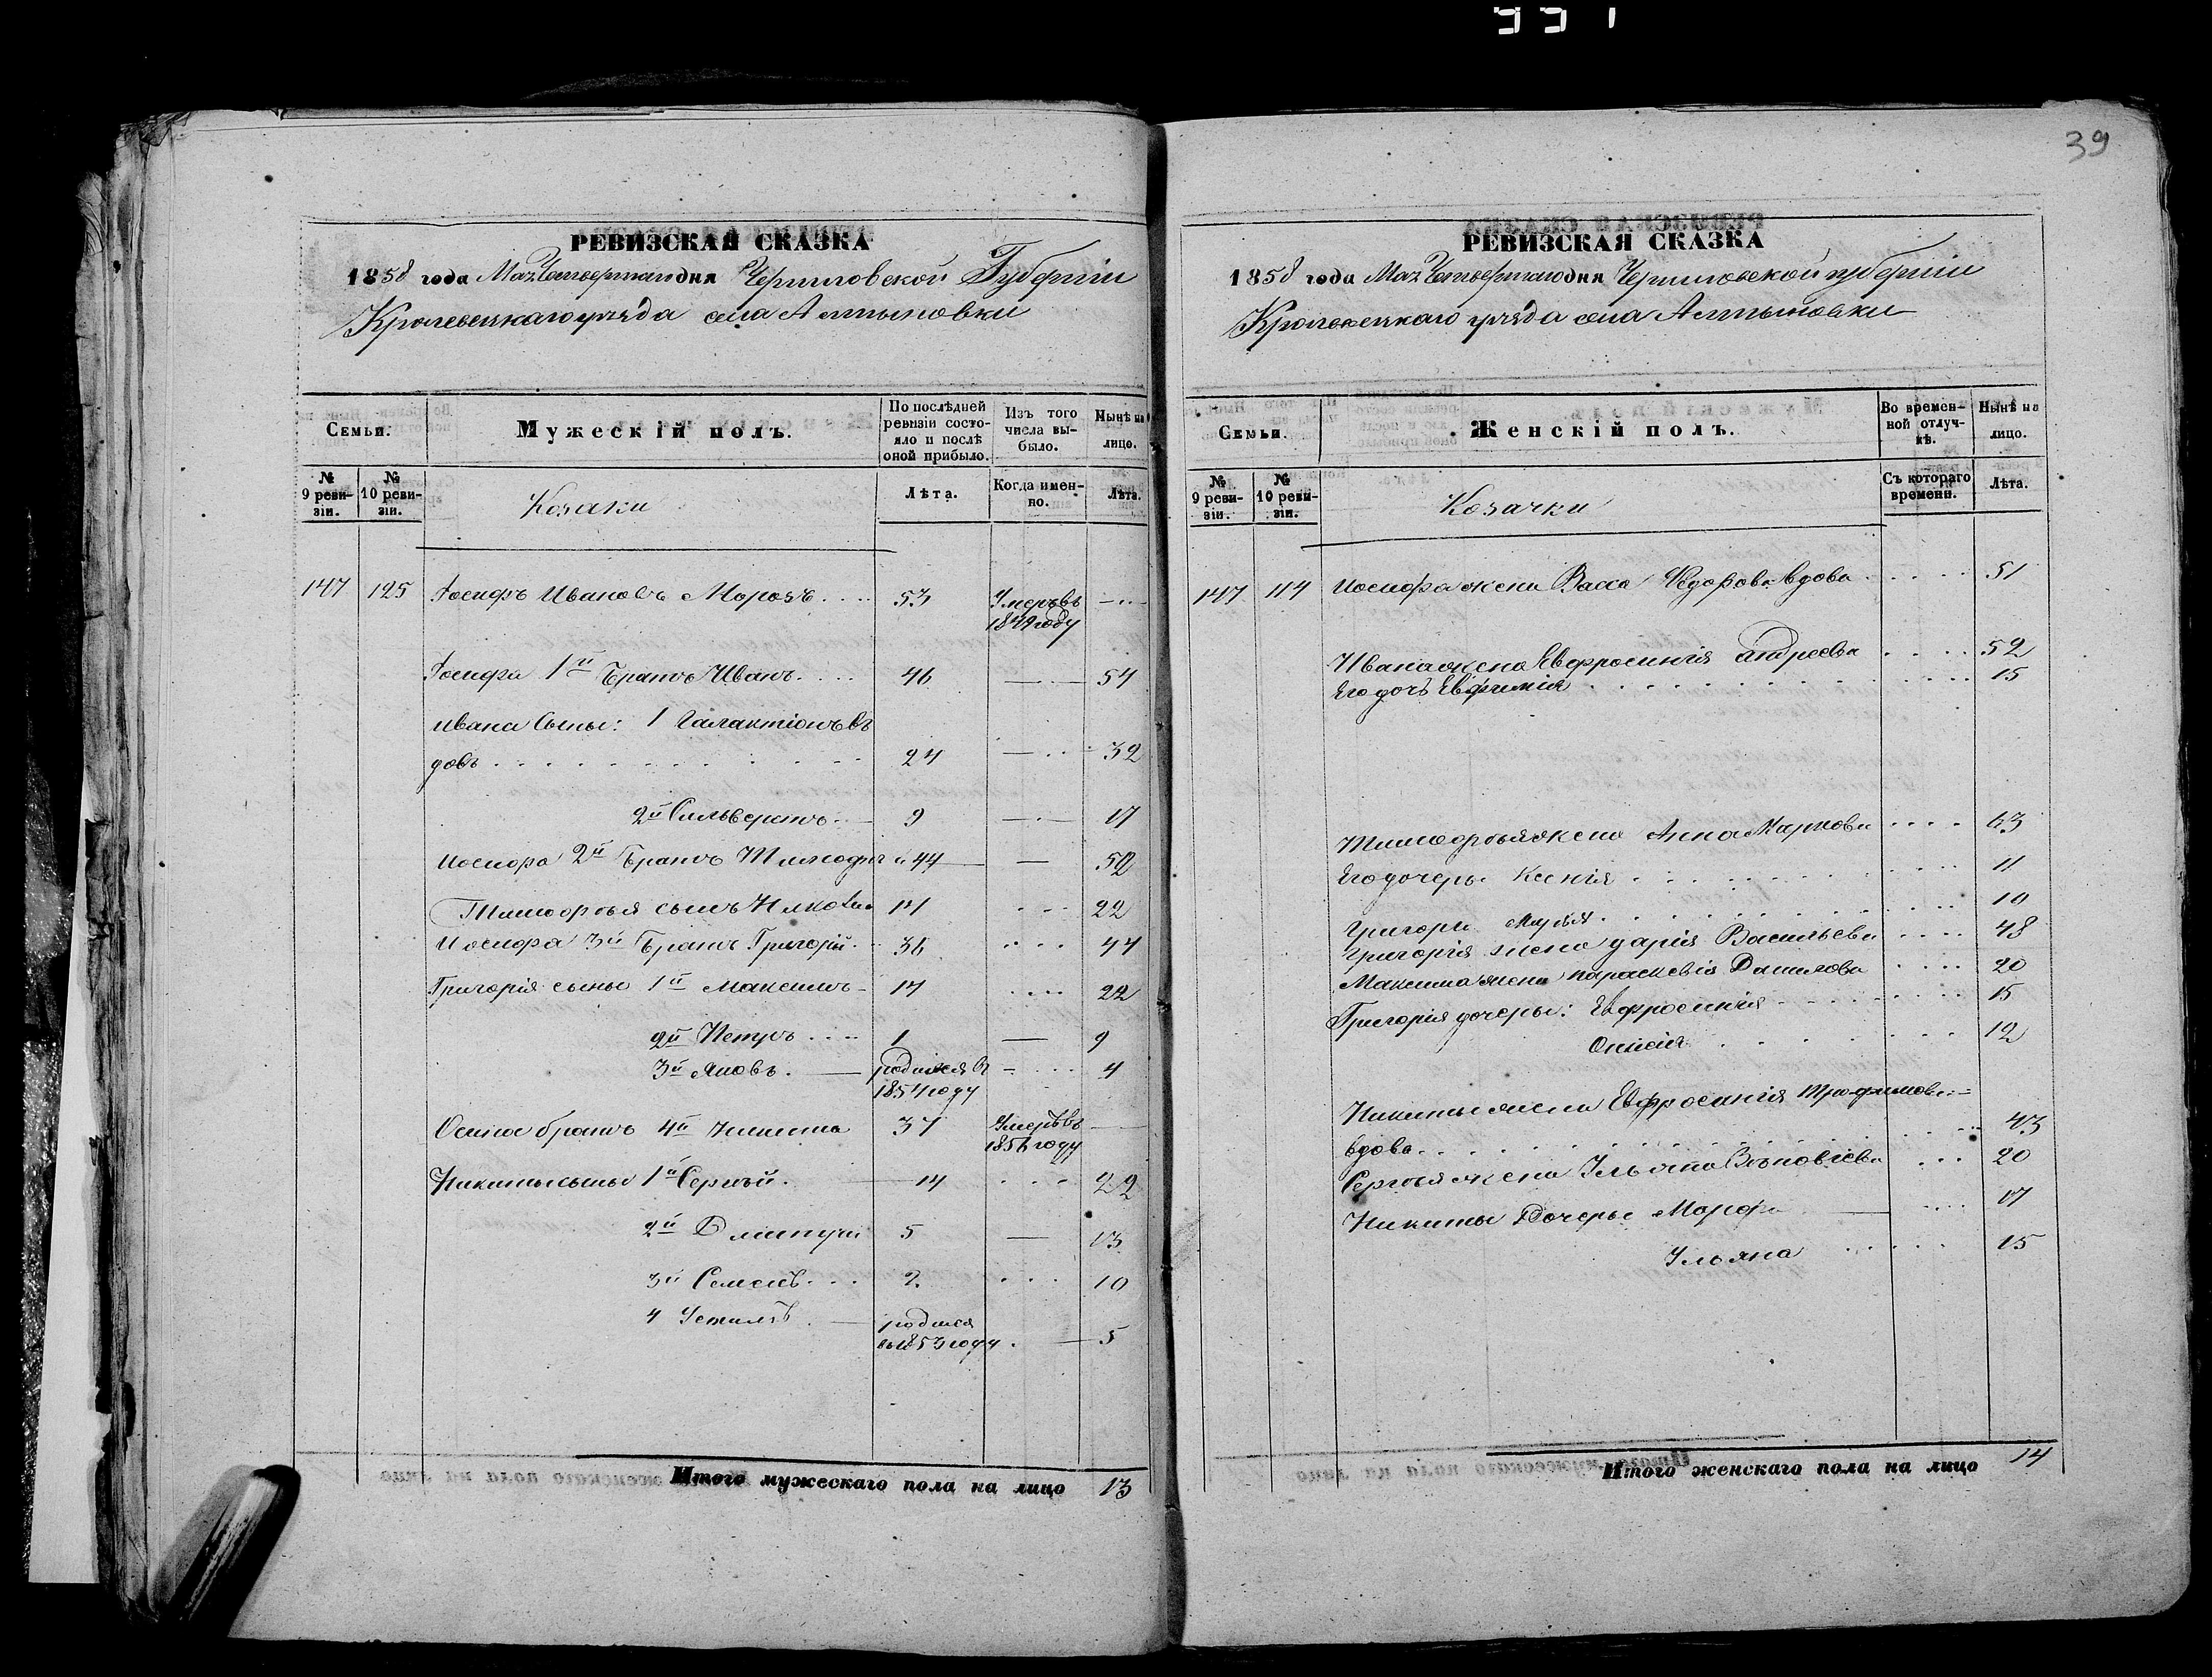 39
РЕВИЗСКАЯ СКАЗКА
1858 года Мая Четвертаго дня Черниговской Губерніи
Кролевецкаго уезда села Алтыновки
Семьи.
Мужескій полъ.
По послѣдней ревизіи состояло и послѣ оной прибыло.
Изъ того числа выбыло.
Нынѣ на лицо.
№ 9 ревизіи.
№ 10 ревизіи.
Козаки
Лѣта.
Когда именно.
Лѣта.
147 125 Іосифъ Ивановъ Морозъ 53 Умеръ въ 1849 году
Іосифа 1й Братъ Иванъ 46 54
Ивана Сыны: 1 Галактіонъ вдовъ 24 32
2й Сильверстъ 9 17
Иосифа 2й Братъ Тимофѣй 44 52
Тимофѣя сынъ Яковъ 14 22
Иосифа 3й Братъ Григорій 36 44
Григорія сыны 1й Максимъ 14 22
2й Петръ 1 9
3й Яковъ родился въ 1854 году 4
Осипа братъ 4й Никита 37 Умеръ въ 1856 году
Никиты сыны 1й Сергѣй 14 22
2й Дмитрій 5 13
3й Семенъ 2 10
4 родился въ 1853 году 5
Итого мужескаго пола на лицо 13
РЕВИЗСКАЯ СКАЗКА
1858 года Мая Четвертаго дня Черниговской губерніи
Кролевецкаго уезда села Алтыновки
Семьи.
Женскій полъ.
Во временной отлучкѣ.
Нынѣ на лицо.
№ 9 ревизіи.
№ 10 ревизіи.
Козачки
Съ котораго времени.
Лѣта.
147 114 Иосифа жена Васса Федорова вдова 51
Ивана жена Евфросинія Андреева 52
Его дочъ Евфимія 15
Тимофѣя жена Анна Маркова 43
Его дочеръ Ксенія 11
Григори Марія 10
Григорія жена Дарія Васильева 48
Максима жена Параскевія Данилова 20
Григорія дочеры: Евфросинія 15
12
Никиты жена Евфросинія Трофимова
вдова 43
Сергѣя жена Ульяна 20
Никиты Дочеры Марфа 17
Ульяна 15
Итого женскаго пола на лицо 14